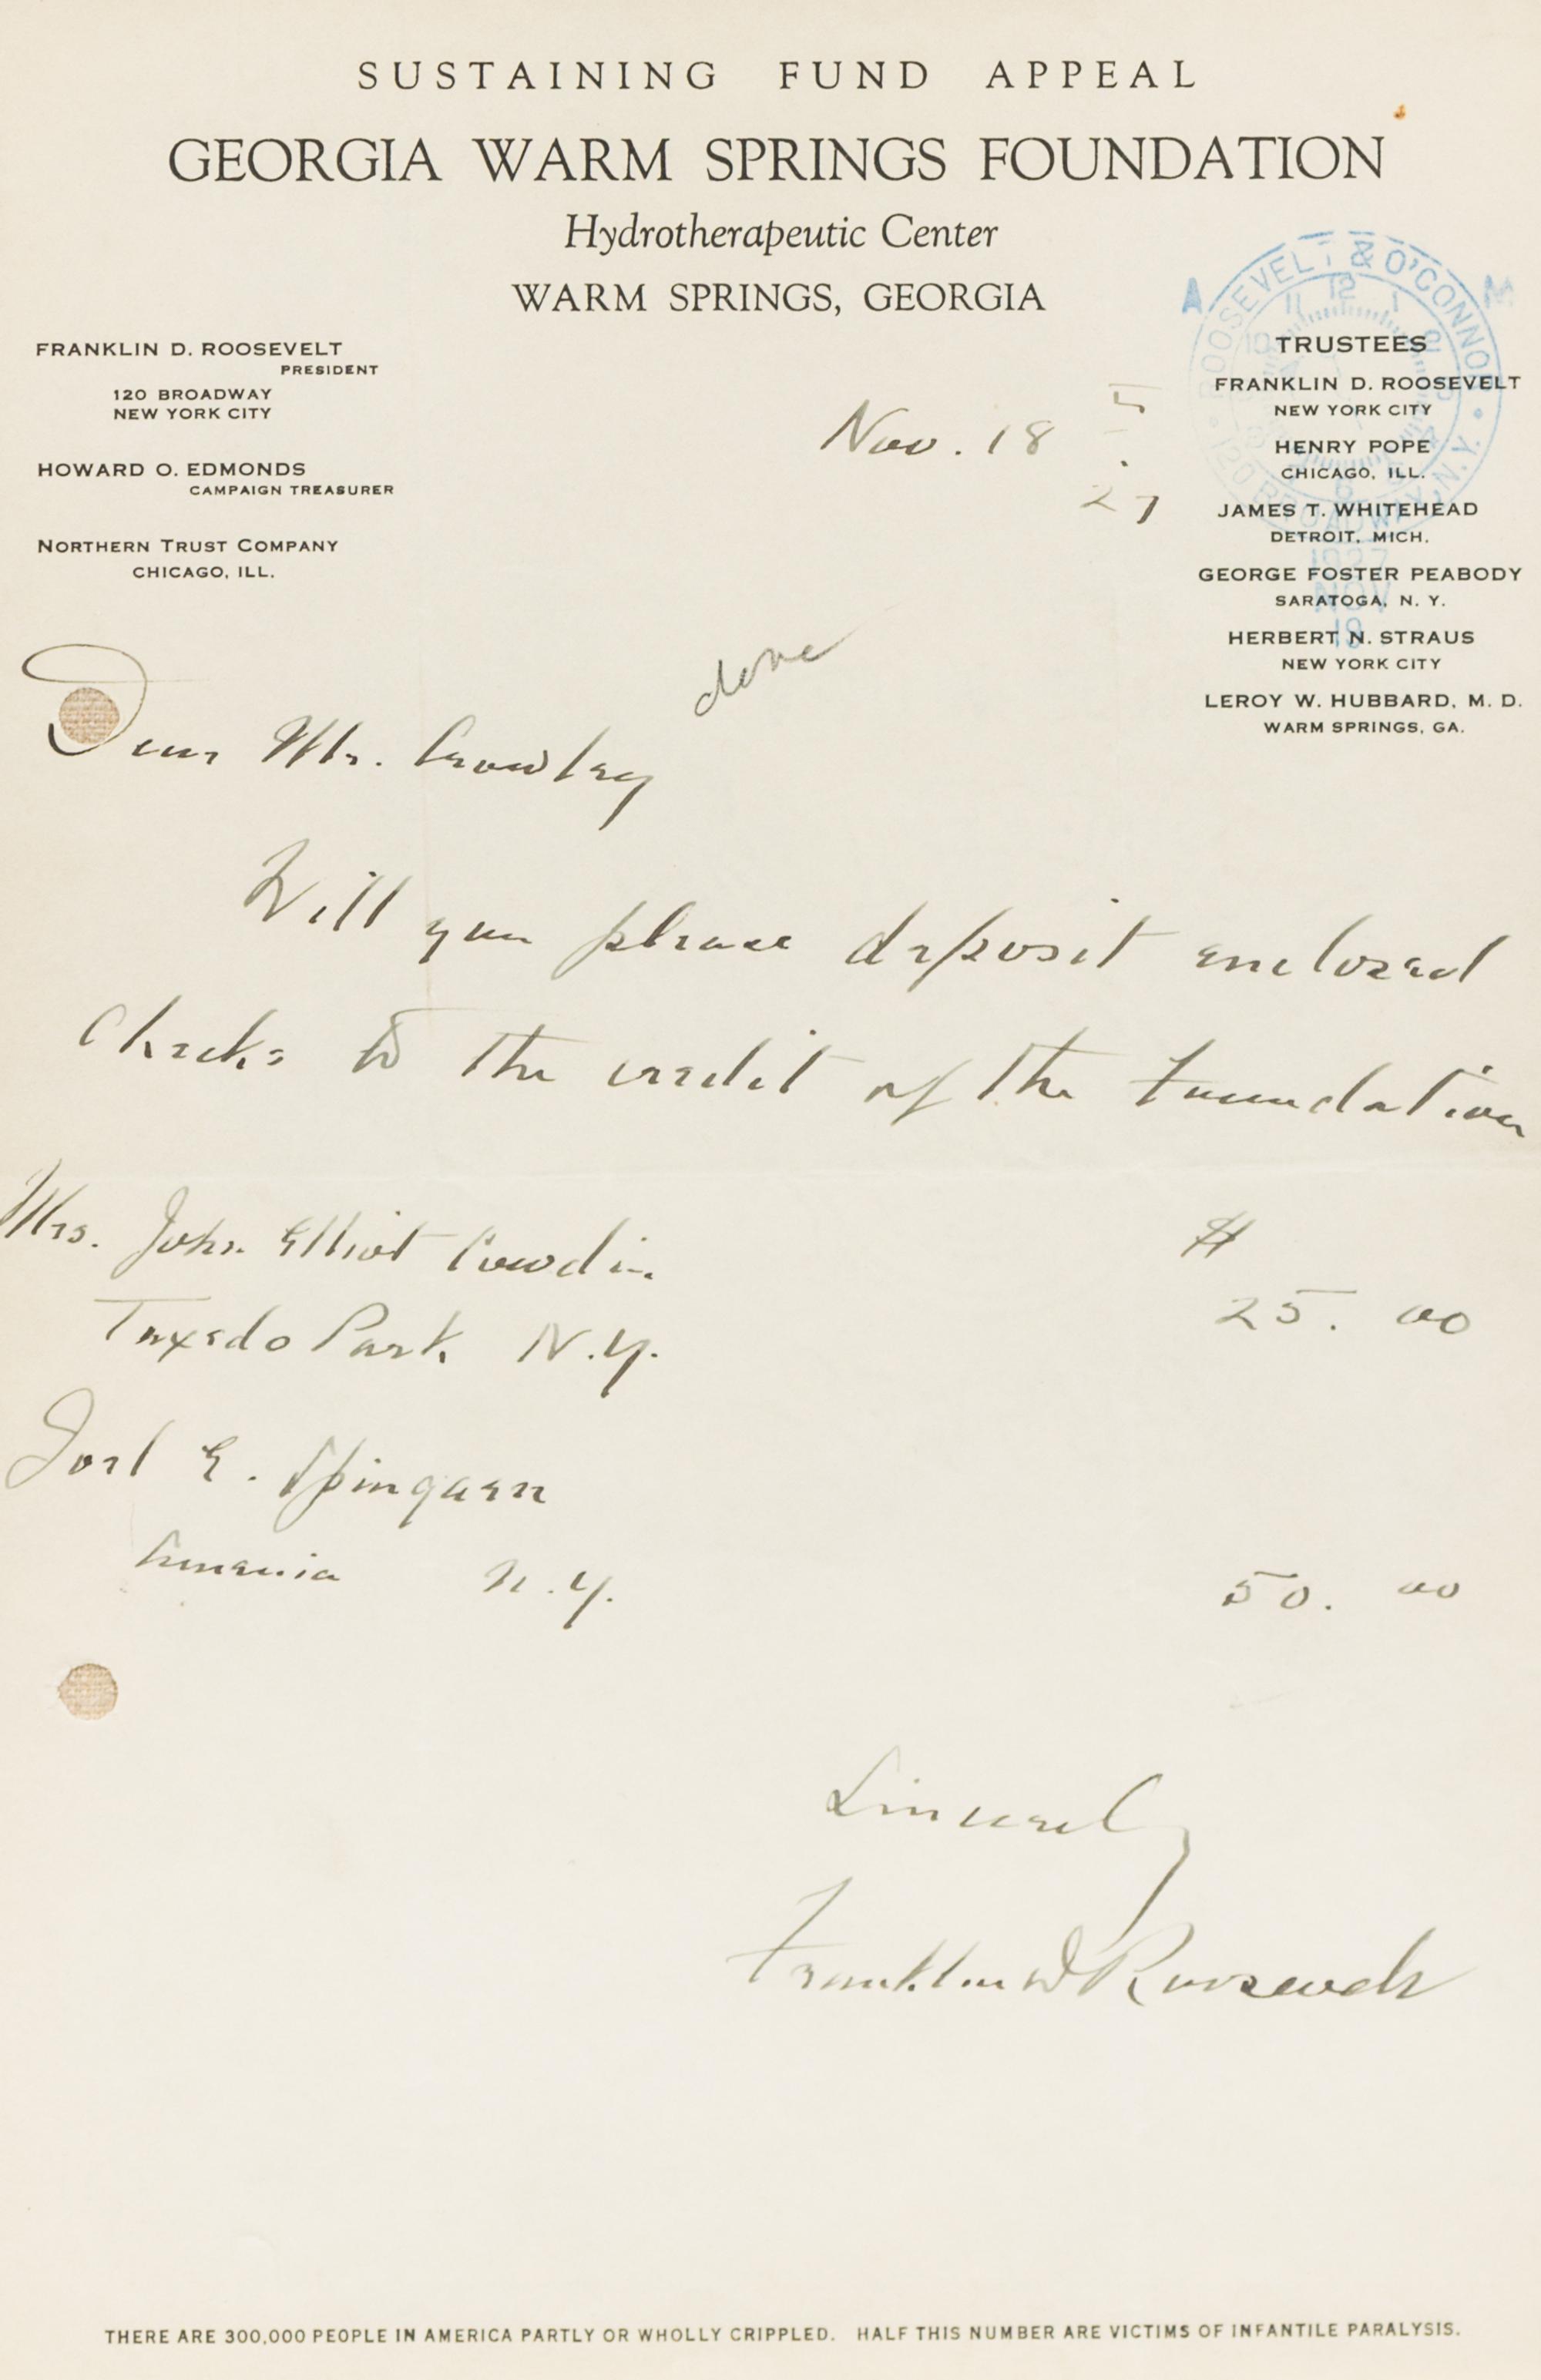 SUSTAINING FUND APPEAL
GEORGIA WARM SPRINGS FOUNDATION
Hydrotherapeutic Center
WARM SPRINGS, GEORGIA
FRANKLIN D. ROOSEVELT
PRESIDENT
120 BROADWAY
NEW YORK CITY
HOWARD O. EDMONDS
CAMPAIGN TREASURER
NORTHERN TRUST COMPANY
CHICAGO, ILL.
A M
ROOSEVELT & O'CONNOR
120 BROADWAY, N.Y.
1927
NOV
19
TRUSTEES
FRANKLIN D. ROOSEVELT
NEW YORK CITY
HENRY POPE
CHICAGO, ILL.
JAMES T. WHITEHEAD
DETROIT, MICH.
GEORGE FOSTER PEABODY
SARATOGA, N. Y.
HERBERT N. STRAUS
NEW YORK CITY
LEROY W. HUBBARD, M. D.
WARM SPRINGS, GA.
Nov. 18
27
done
Dear Mr. Crowley
Will you please deposit enclosed
checks to the credit of the Foundation
Mrs. John Elliot Cowdin
$
Tuxedo Park N.Y. 25. 00
Joel E. Spingarn
Amenia N.Y. 50. 00
Sincerely
Franklin D Roosevelt
THERE ARE 300,000 PEOPLE IN AMERICA PARTLY OR WHOLLY CRIPPLED. HALF THIS NUMBER ARE VICTIMS OF INFANTILE PARALYSIS.